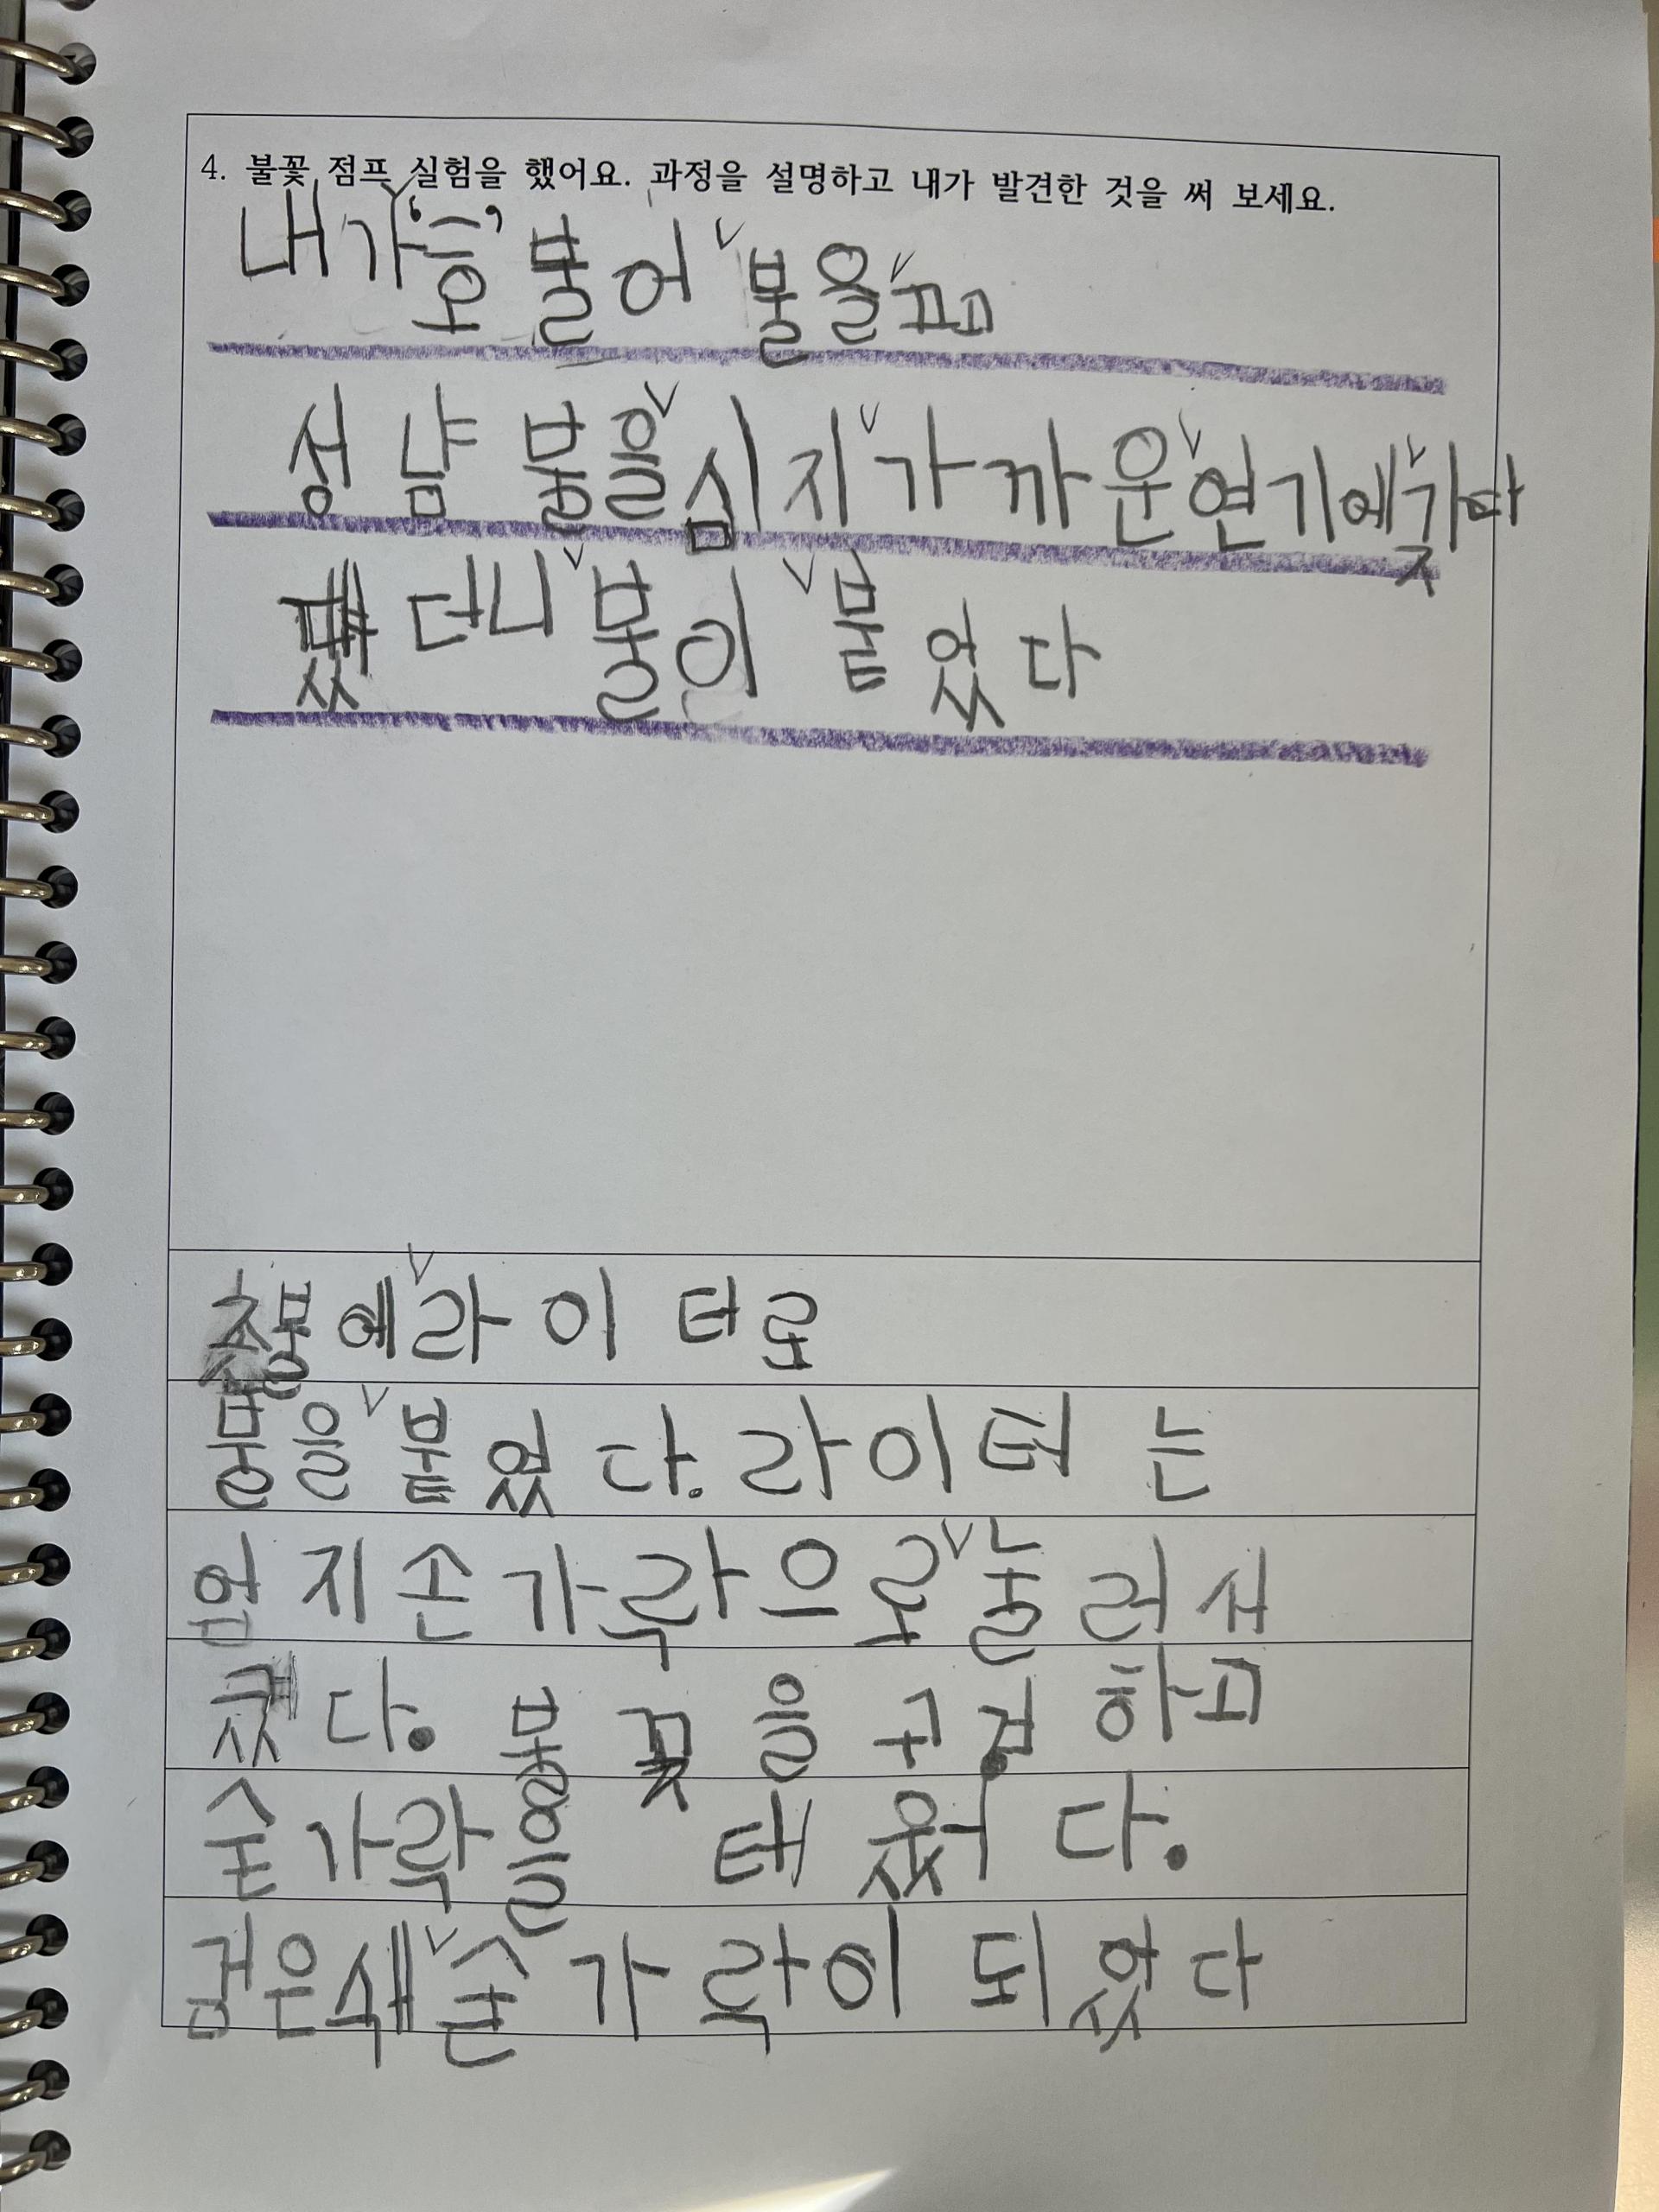 4. 불꽃 점프 실험을 했어요. 과정을 설명하고 내가 발견한 것을 써 보세요.
내가 '흐' 불어 불을 끄고
성냥 불을 심지 가까운 연기에 갖다
댔더니 불이 붙었다
촛불에 라이터로
불을 붙였다. 라이터는
엄지손가락으로 눌러서
켰다. 불꽃을 구경하고
숟가락을 태웠다.
검은색 숟가락이 되었다